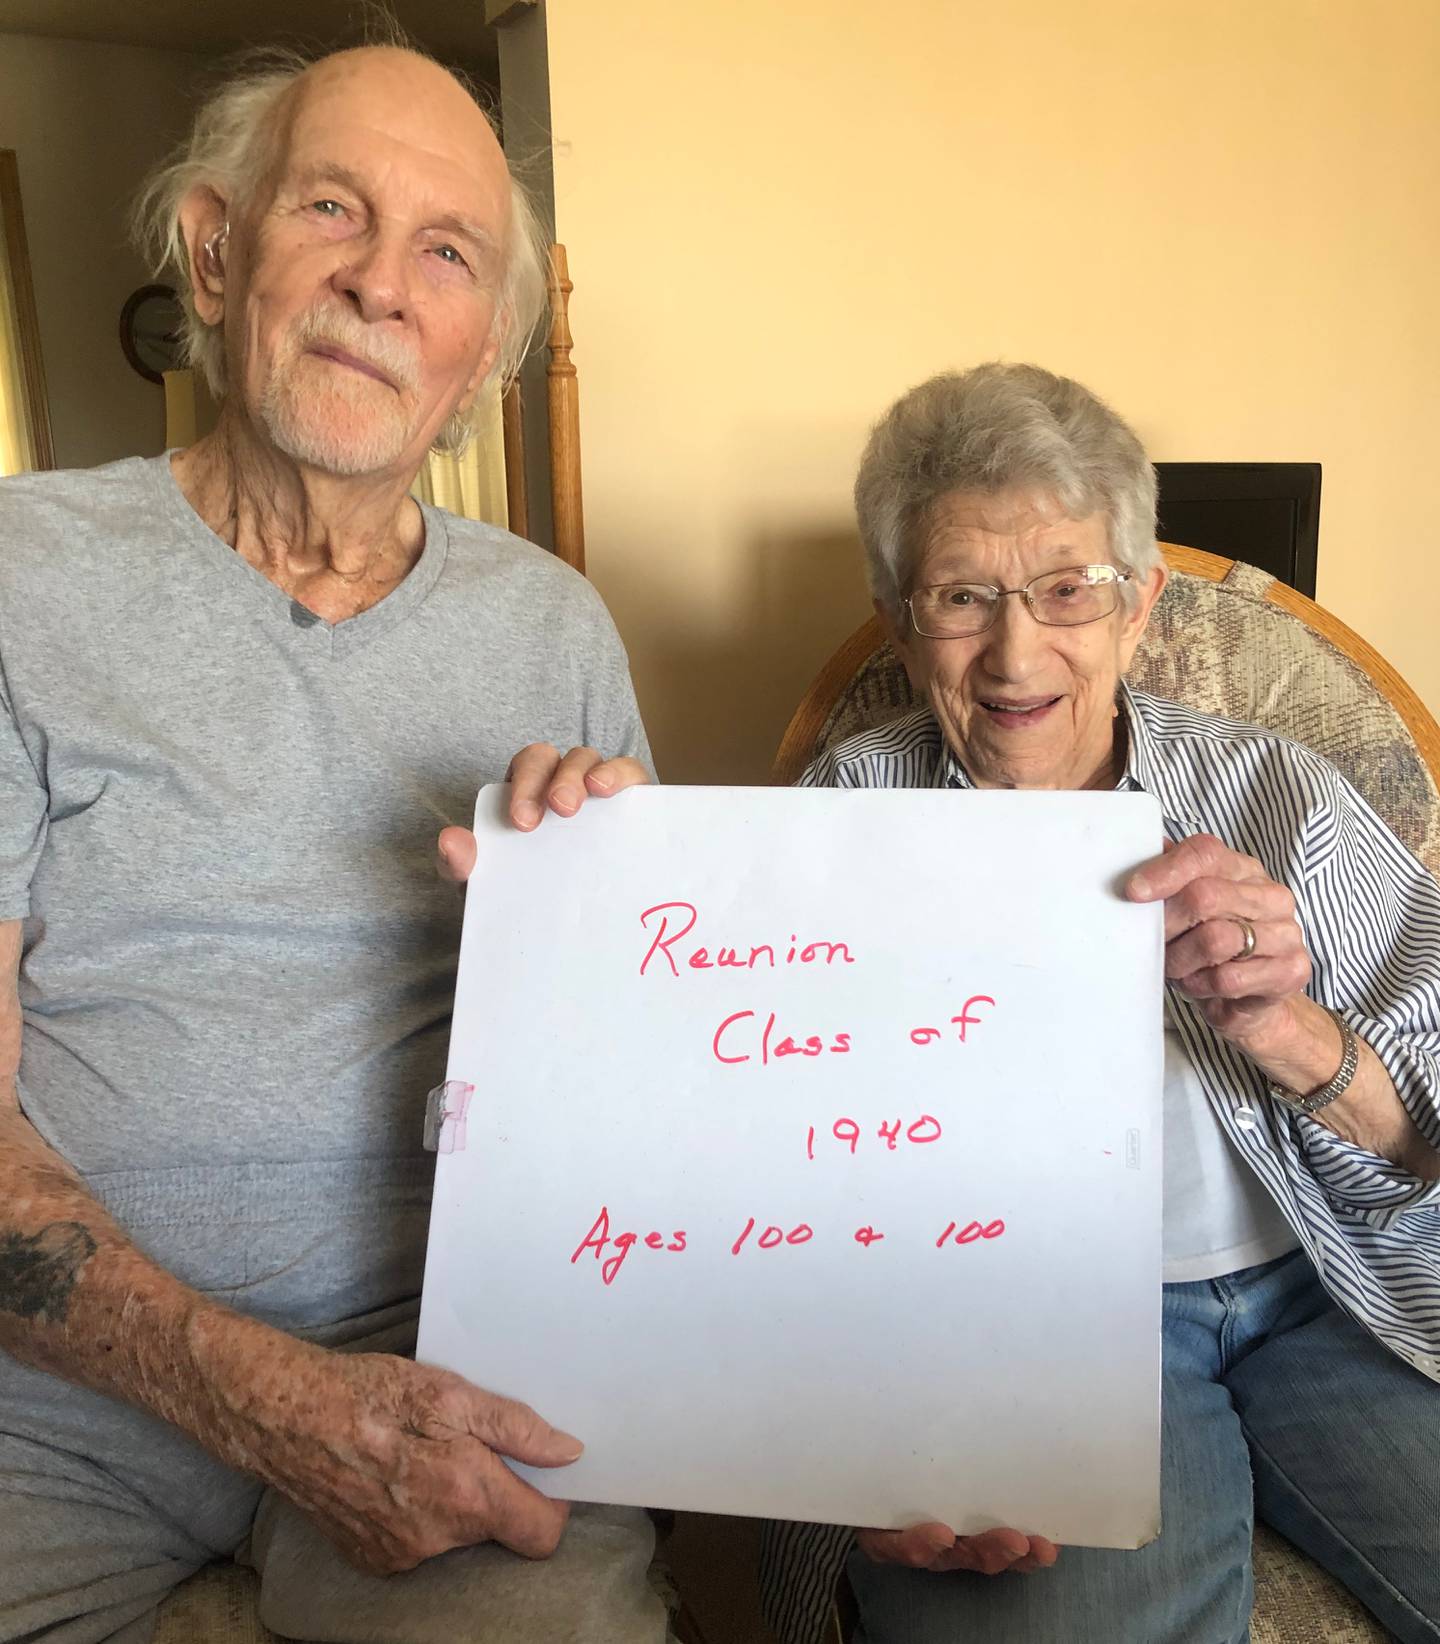 Reunion
Class of
1940
Ages 100 & 100
Quartet